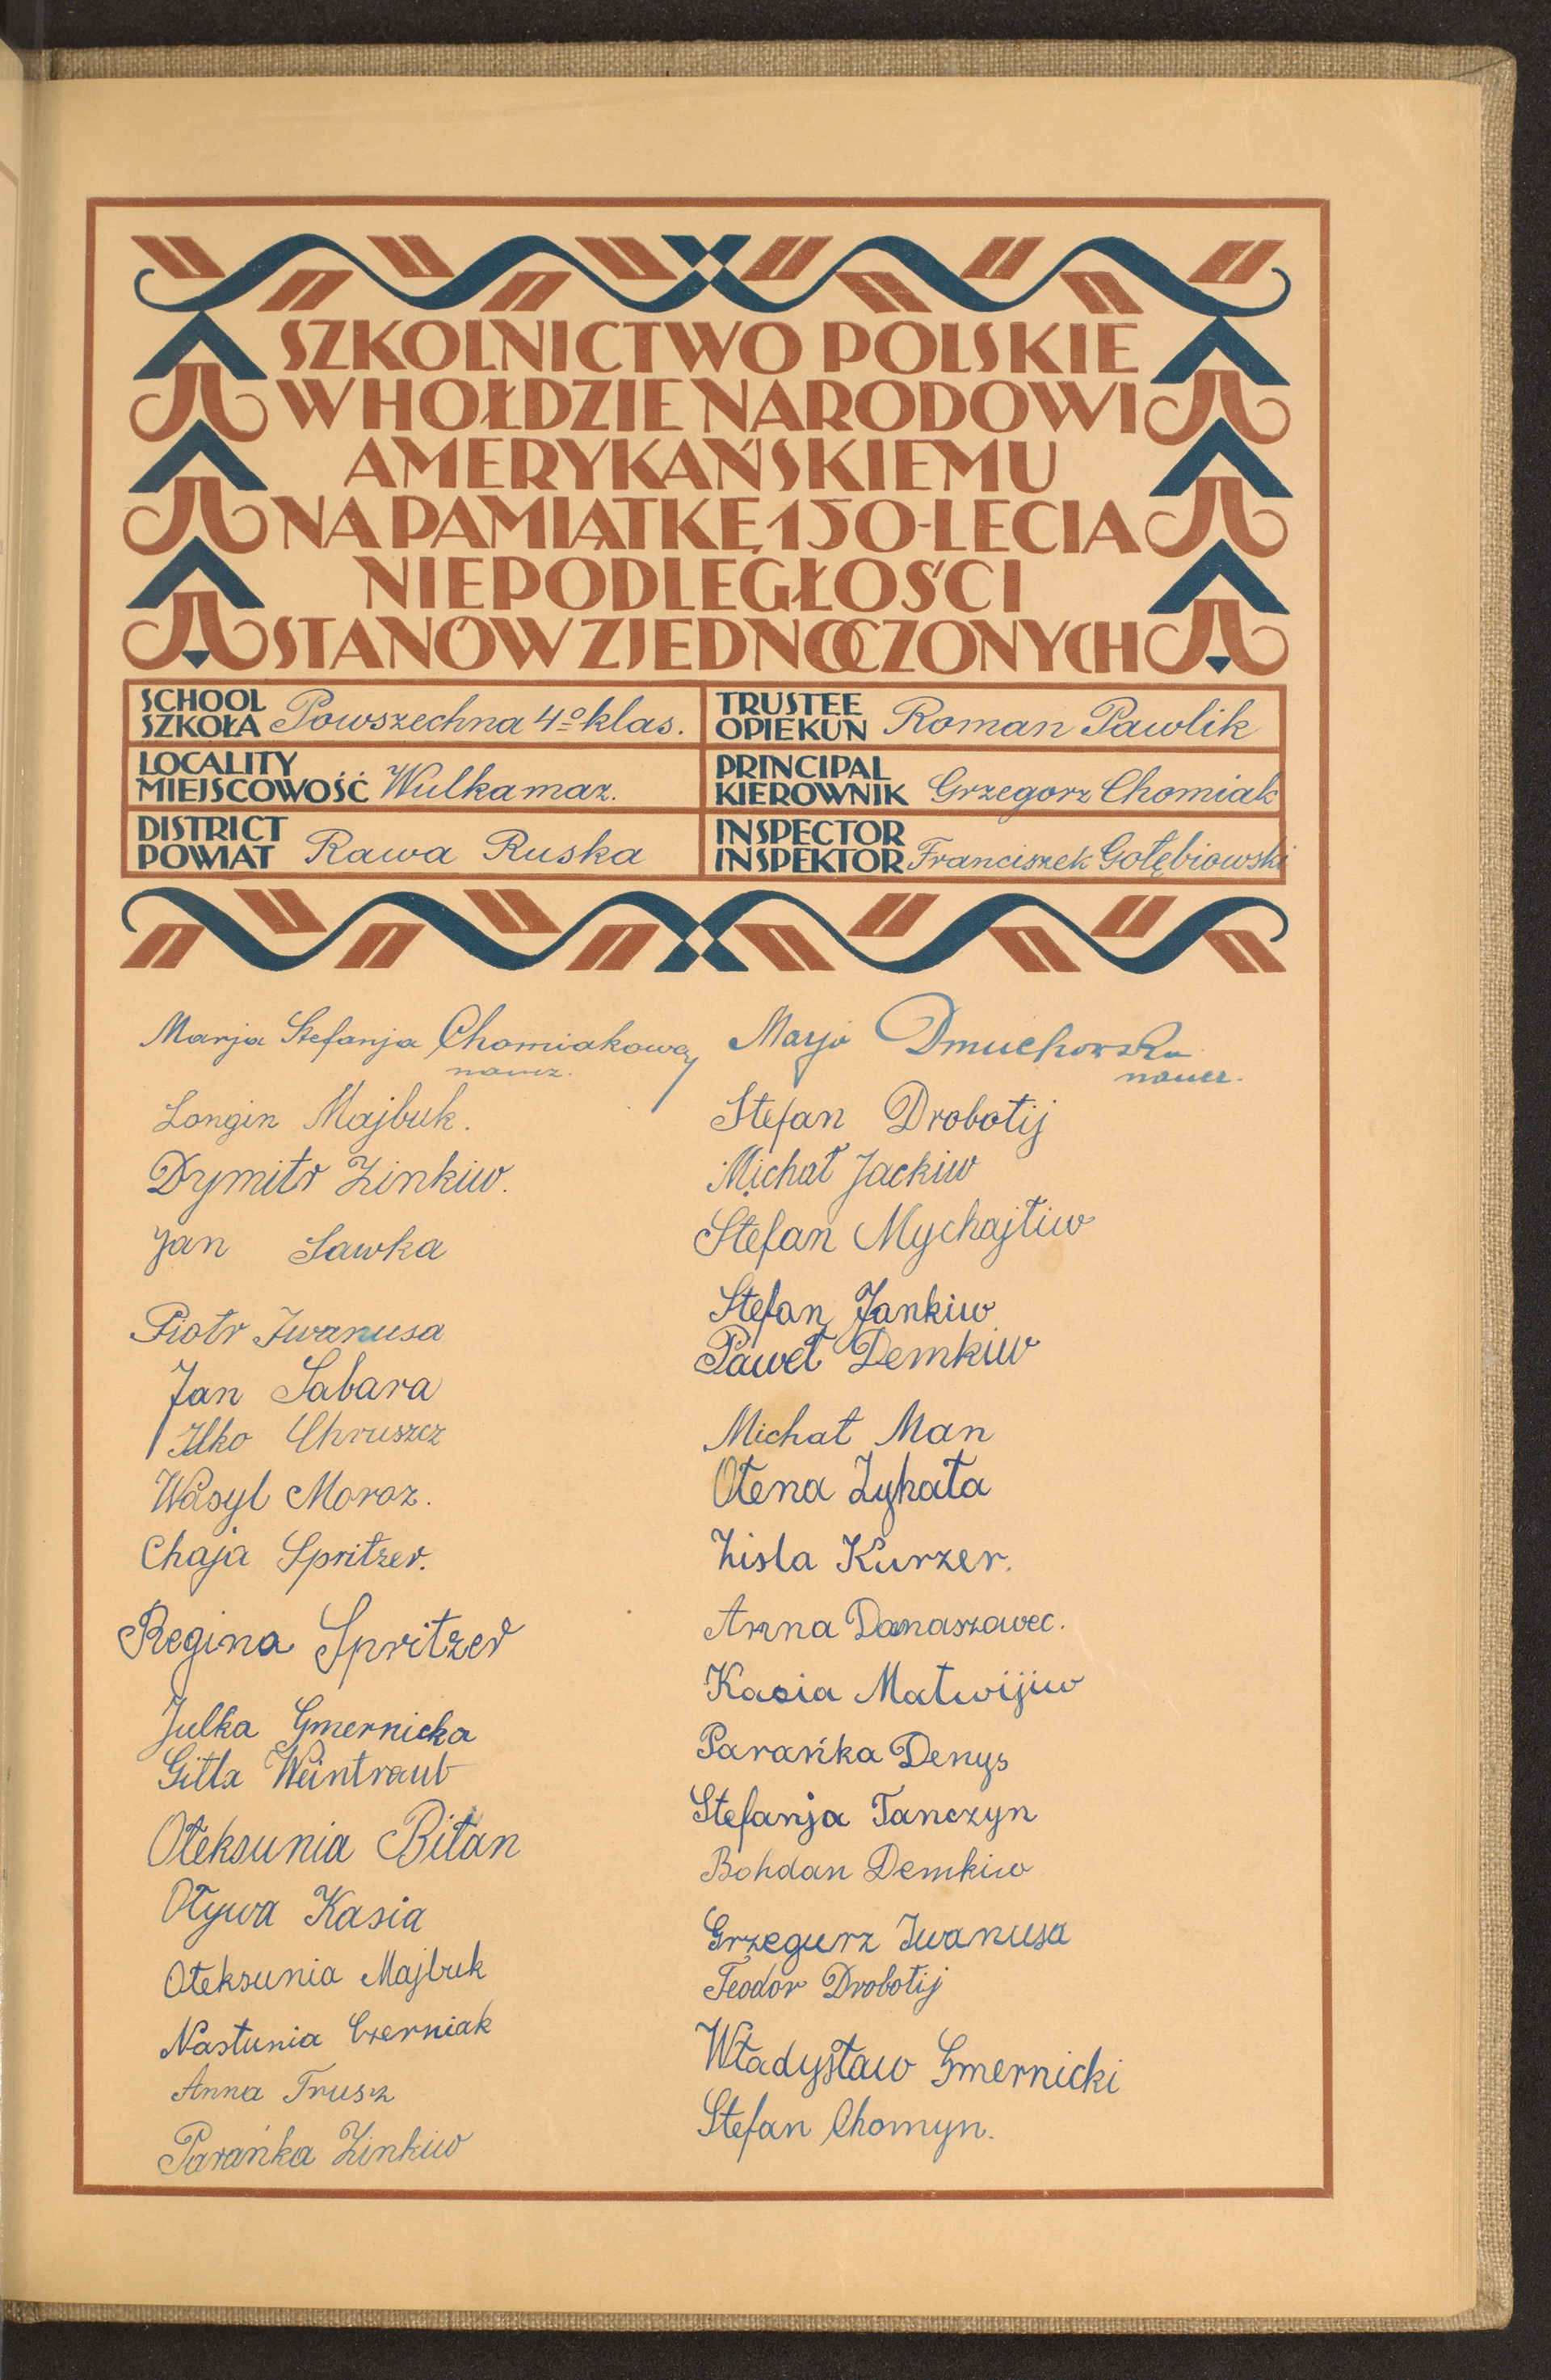 SZKOLNICTWO POLSKIE
W HOŁDZIE NARODOWI
AMERYKAŃSKIEMU
NA PAMIĄTKĘ 150-LECIA
NIEPODLEGŁOŚCI
STANÓW ZJEDNOCZONYCH
SCHOOL
SZKOŁA Powszechna 4º klas.
LOCALITY
MIEJSCOWOŚĆ Wulka maz.
DISTRICT
POWIAT Rawa Ruska
TRUSTEE
OPIEKUN Roman Pawlik
PRINCIPAL
KIEROWNIK Grzegorz Chomiak
INSPECTOR
INSPEKTOR Franciszek Gołębiowski
Marja Stefanja Chomiakowa
naucz.
Longin Majbuk.
Dymitr Zinkiw.
Jan Sawka
Piotr Iwanusa
Jan Sabara
Ilko Chruszcz
Wasyl Moroz.
Chaja Spritzer.
Regina Spritzer
Julka Gmernicka
Gitla Weintraub
Ołeksunia Biłan
Oływa Kasia
Ołeksunia Majbuk
Nastunia Czerniak
Anna Trusz
Parańka Zinkiw
Marja Dmuchowska
naucz.
Stefan Drobotij
Michał Jackiw
Stefan Mychajłiw
Stefan Jankiw
Paweł Demkiw
Michał Man
Ołena Zyhała
Zisla Kurzer.
Anna Danaszawec.
Kasia Matwijiw
Parańka Denys
Stefanja Tanczyn
Bohdan Demkiw
Grzegurz Iwanusa
Teodor Drobotij
Władysław Gmernicki
Stefan Chomyn.